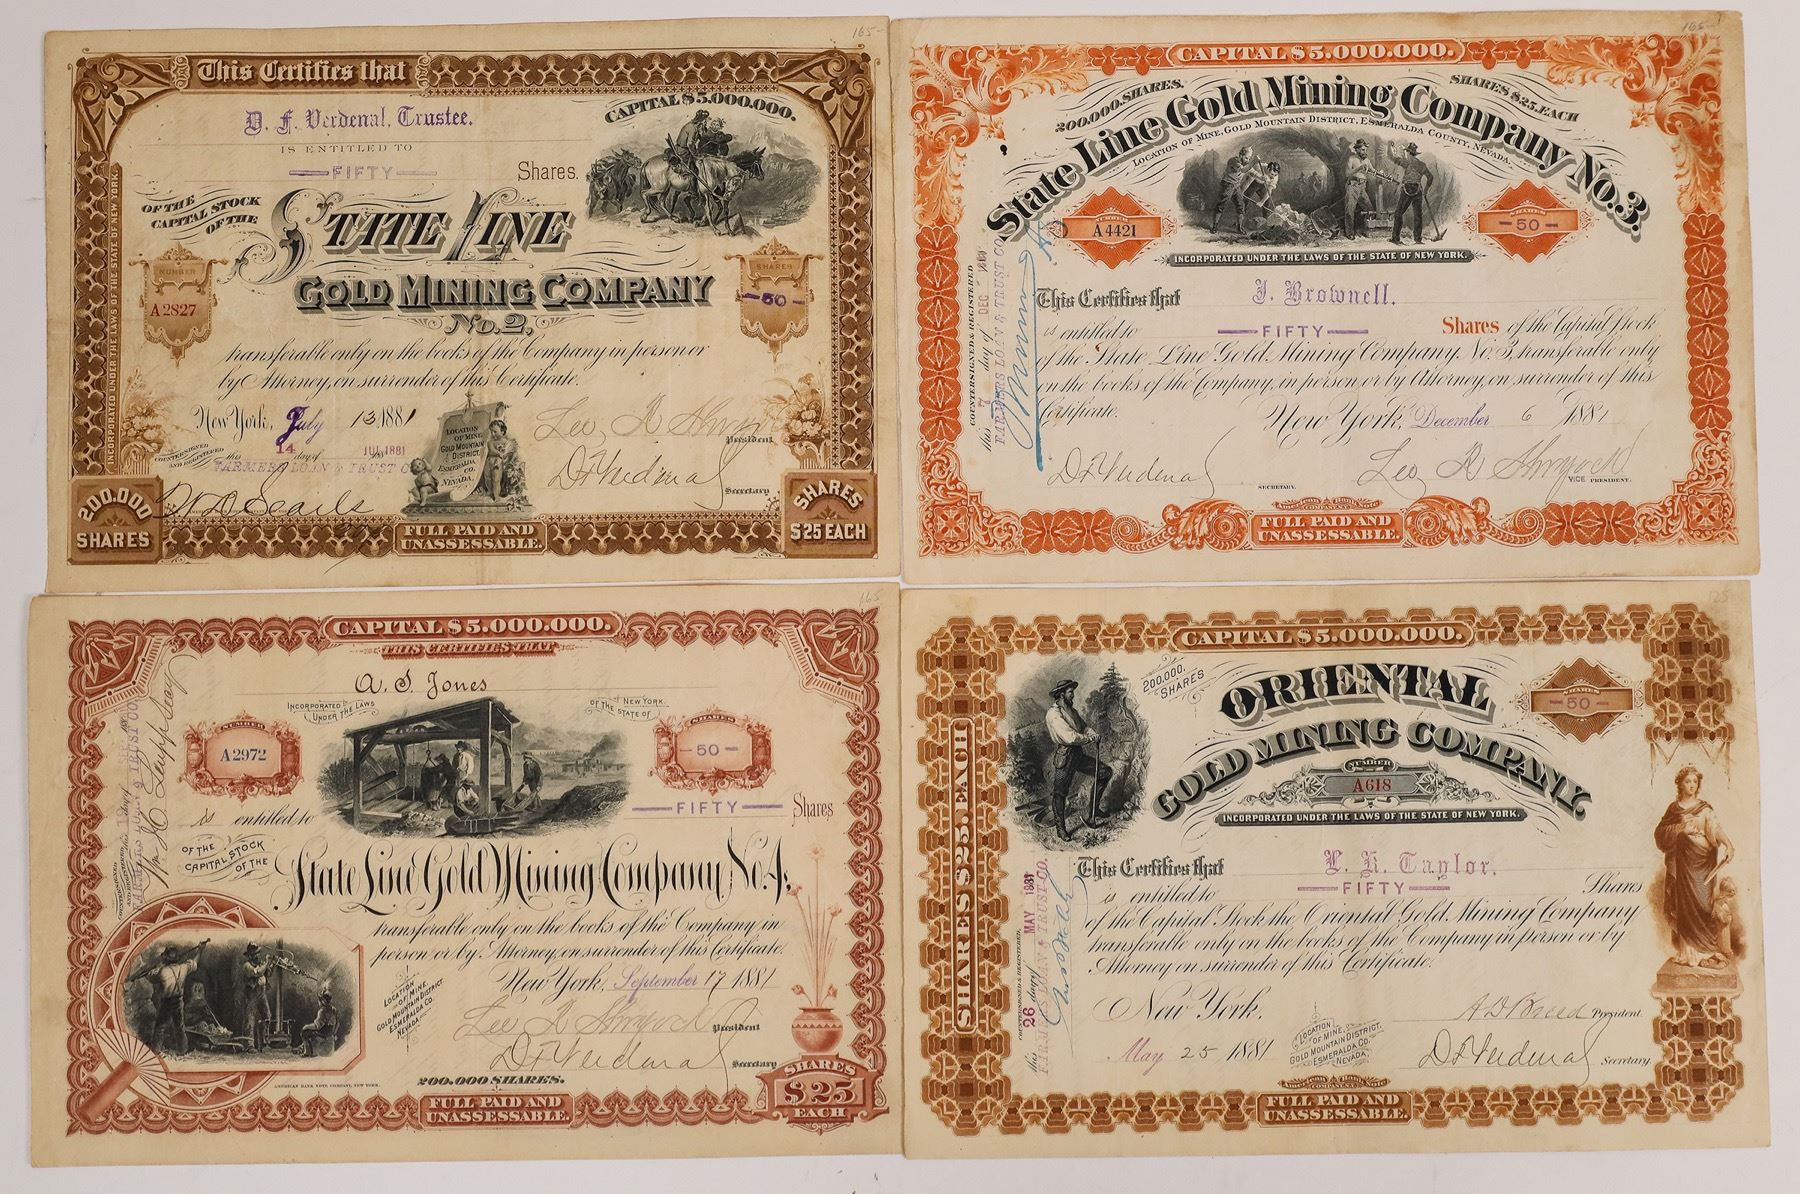 165-
This Certifies that
D. F. Verdenal, Trustee.
IS ENTITLED TO
FIFTY
Shares.
CAPITAL $5.000.000.
OF THE
CAPITAL STOCK
OF THE
STATE LINE
GOLD MINING COMPANY
No. 2,
NUMBER
A 2827
SHARES
50
transferable only on the books of the Company in person or
by Attorney, on surrender of this Certificate.
New York, July 13 1881
COUNTERSIGNED
AND REGISTERED
this 14 day of JUL 1881
FARMERS LOAN & TRUST CO
LOCATION
OF MINE
GOLD MOUNTAIN
DISTRICT,
ESMERALDA
CO.
NEVADA.
President
D F Verdenal
Secretary
INCORPORATED UNDER THE LAWS OF THE STATE OF NEW YORK.
200.000
SHARES
FULL PAID AND
UNASSESSABLE.
SHARES
$25 EACH
165-
CAPITAL $5.000.000.
200.000. SHARES.
SHARES $25. EACH
State Line Gold Mining Company No. 3.
LOCATION OF MINE, GOLD MOUNTAIN DISTRICT, ESMERALDA COUNTY, NEVADA.
NUMBER
A 4421
SHARES
50
INCORPORATED UNDER THE LAWS OF THE STATE OF NEW YORK.
This Certifies that J. Brownell.
is entitled to FIFTY Shares of the Capital Stock
of the State Line Gold Mining Company No. 3, transferable only
on the books of the Company, in person or by Attorney, on surrender of this
Certificate. New York, December 6 1881
COUNTERSIGNED & REGISTERED
this 7 day of DEC 1881
FARMERS LOAN & TRUST CO.
D F Verdenal
SECRETARY.
VICE PRESIDENT.
American Bank Note
FULL PAID AND
UNASSESSABLE.
165
CAPITAL $5.000.000.
THIS CERTIFIES THAT
A. S. Jones
INCORPORATED
UNDER THE LAWS
OF THE STATE OF
NEW YORK.
NUMBER
A 2972
SHARES
50
is entitled to FIFTY Shares
OF THE
CAPITAL STOCK
OF THE
State Line Gold Mining Company No. 4,
transferable only on the books of the Company in
person or by Attorney, on surrender of this Certificate.
New York, September 17 1881
LOCATION
OF MINE,
GOLD MOUNTAIN DISTRICT.
ESMERALDA CO.
NEVADA.
President
D F Verdenal
Secretary
AMERICAN BANK NOTE COMPANY, NEW YORK.
200.000 SHARES.
FULL PAID AND
UNASSESSABLE.
SHARES
$25
EACH
125
CAPITAL $5.000.000.
200.000.
SHARES
ORIENTAL
GOLD MINING COMPANY,
NUMBER
A 618
SHARES
50
INCORPORATED UNDER THE LAWS OF THE STATE OF NEW YORK.
This Certifies that L. R. Taylor.
is entitled to FIFTY Shares
of the Capital Stock the Oriental Gold Mining Company
transferable only on the books of the Company in person or by
Attorney on surrender of this Certificate.
New York,
May 25 1881
COUNTERSIGNED & REGISTERED.
this 26 day of MAY 1881
FARMERS LOAN & TRUST CO.
LOCATION
OF MINE,
GOLD MOUNTAIN DISTRICT.
ESMERALDA CO.
NEVADA.
A D Breed President.
D F Verdenal Secretary
SHARES $25. EACH
American Bank Note
FULL PAID AND
UNASSESSABLE.